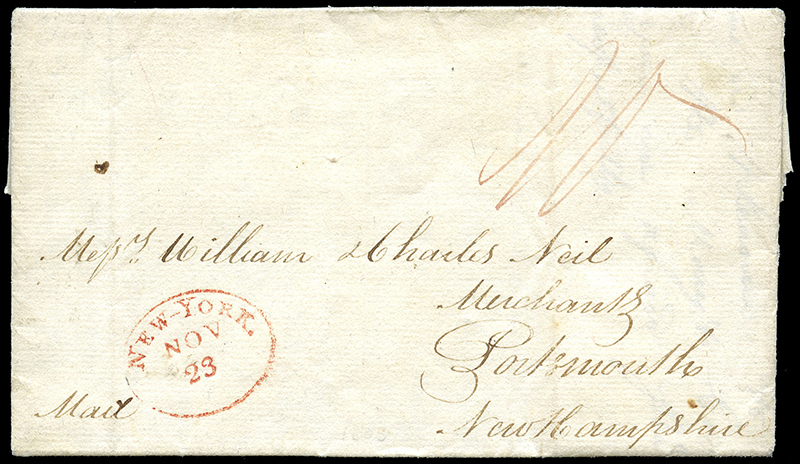 Messrs William & Charles Neil
Merchants
Portsmouth
New Hampshire
NEW-YORK.
NOV
23
Mail